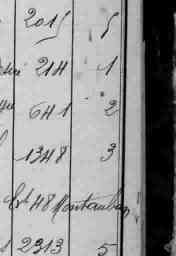 2015 5
214 1
641 2
1348 3
48 Montauban
2313 5